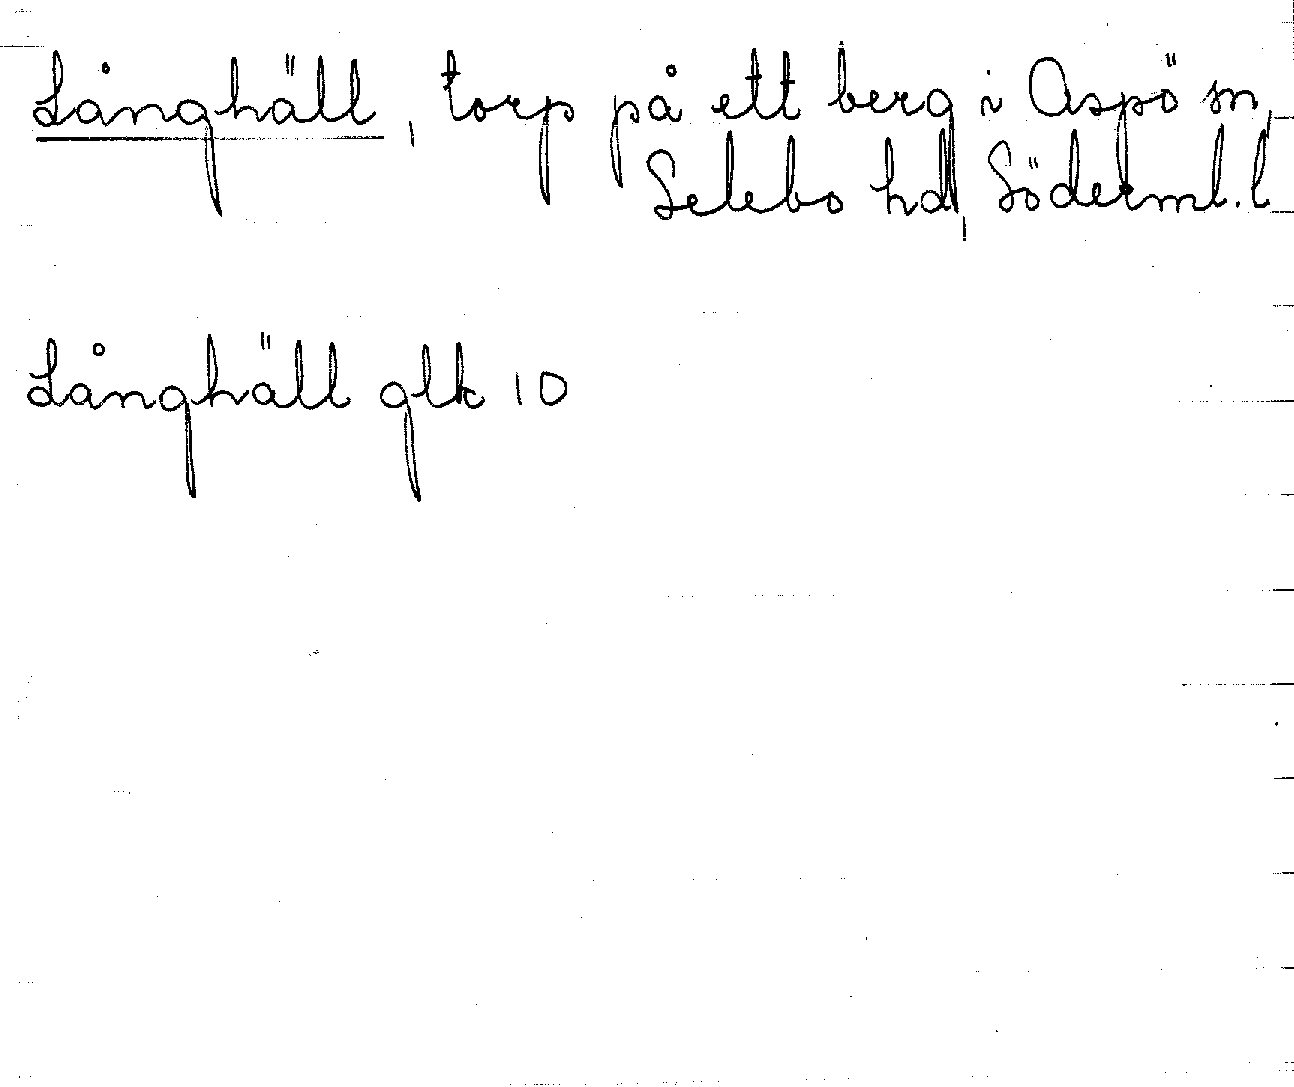 Långhäll, torp på ett berg i Aspö sn,
Selebo hd, Söderml. l
Långhäll glk 10